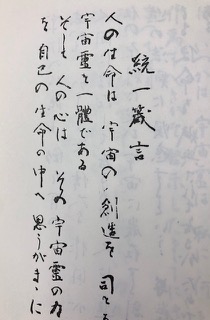 統一箴言
人の生命は 宇宙の創造を司てる
宇宙霊と一體である
そして 人の心は その宇宙霊の力
を自己の生命の中へ 思うがまゝに